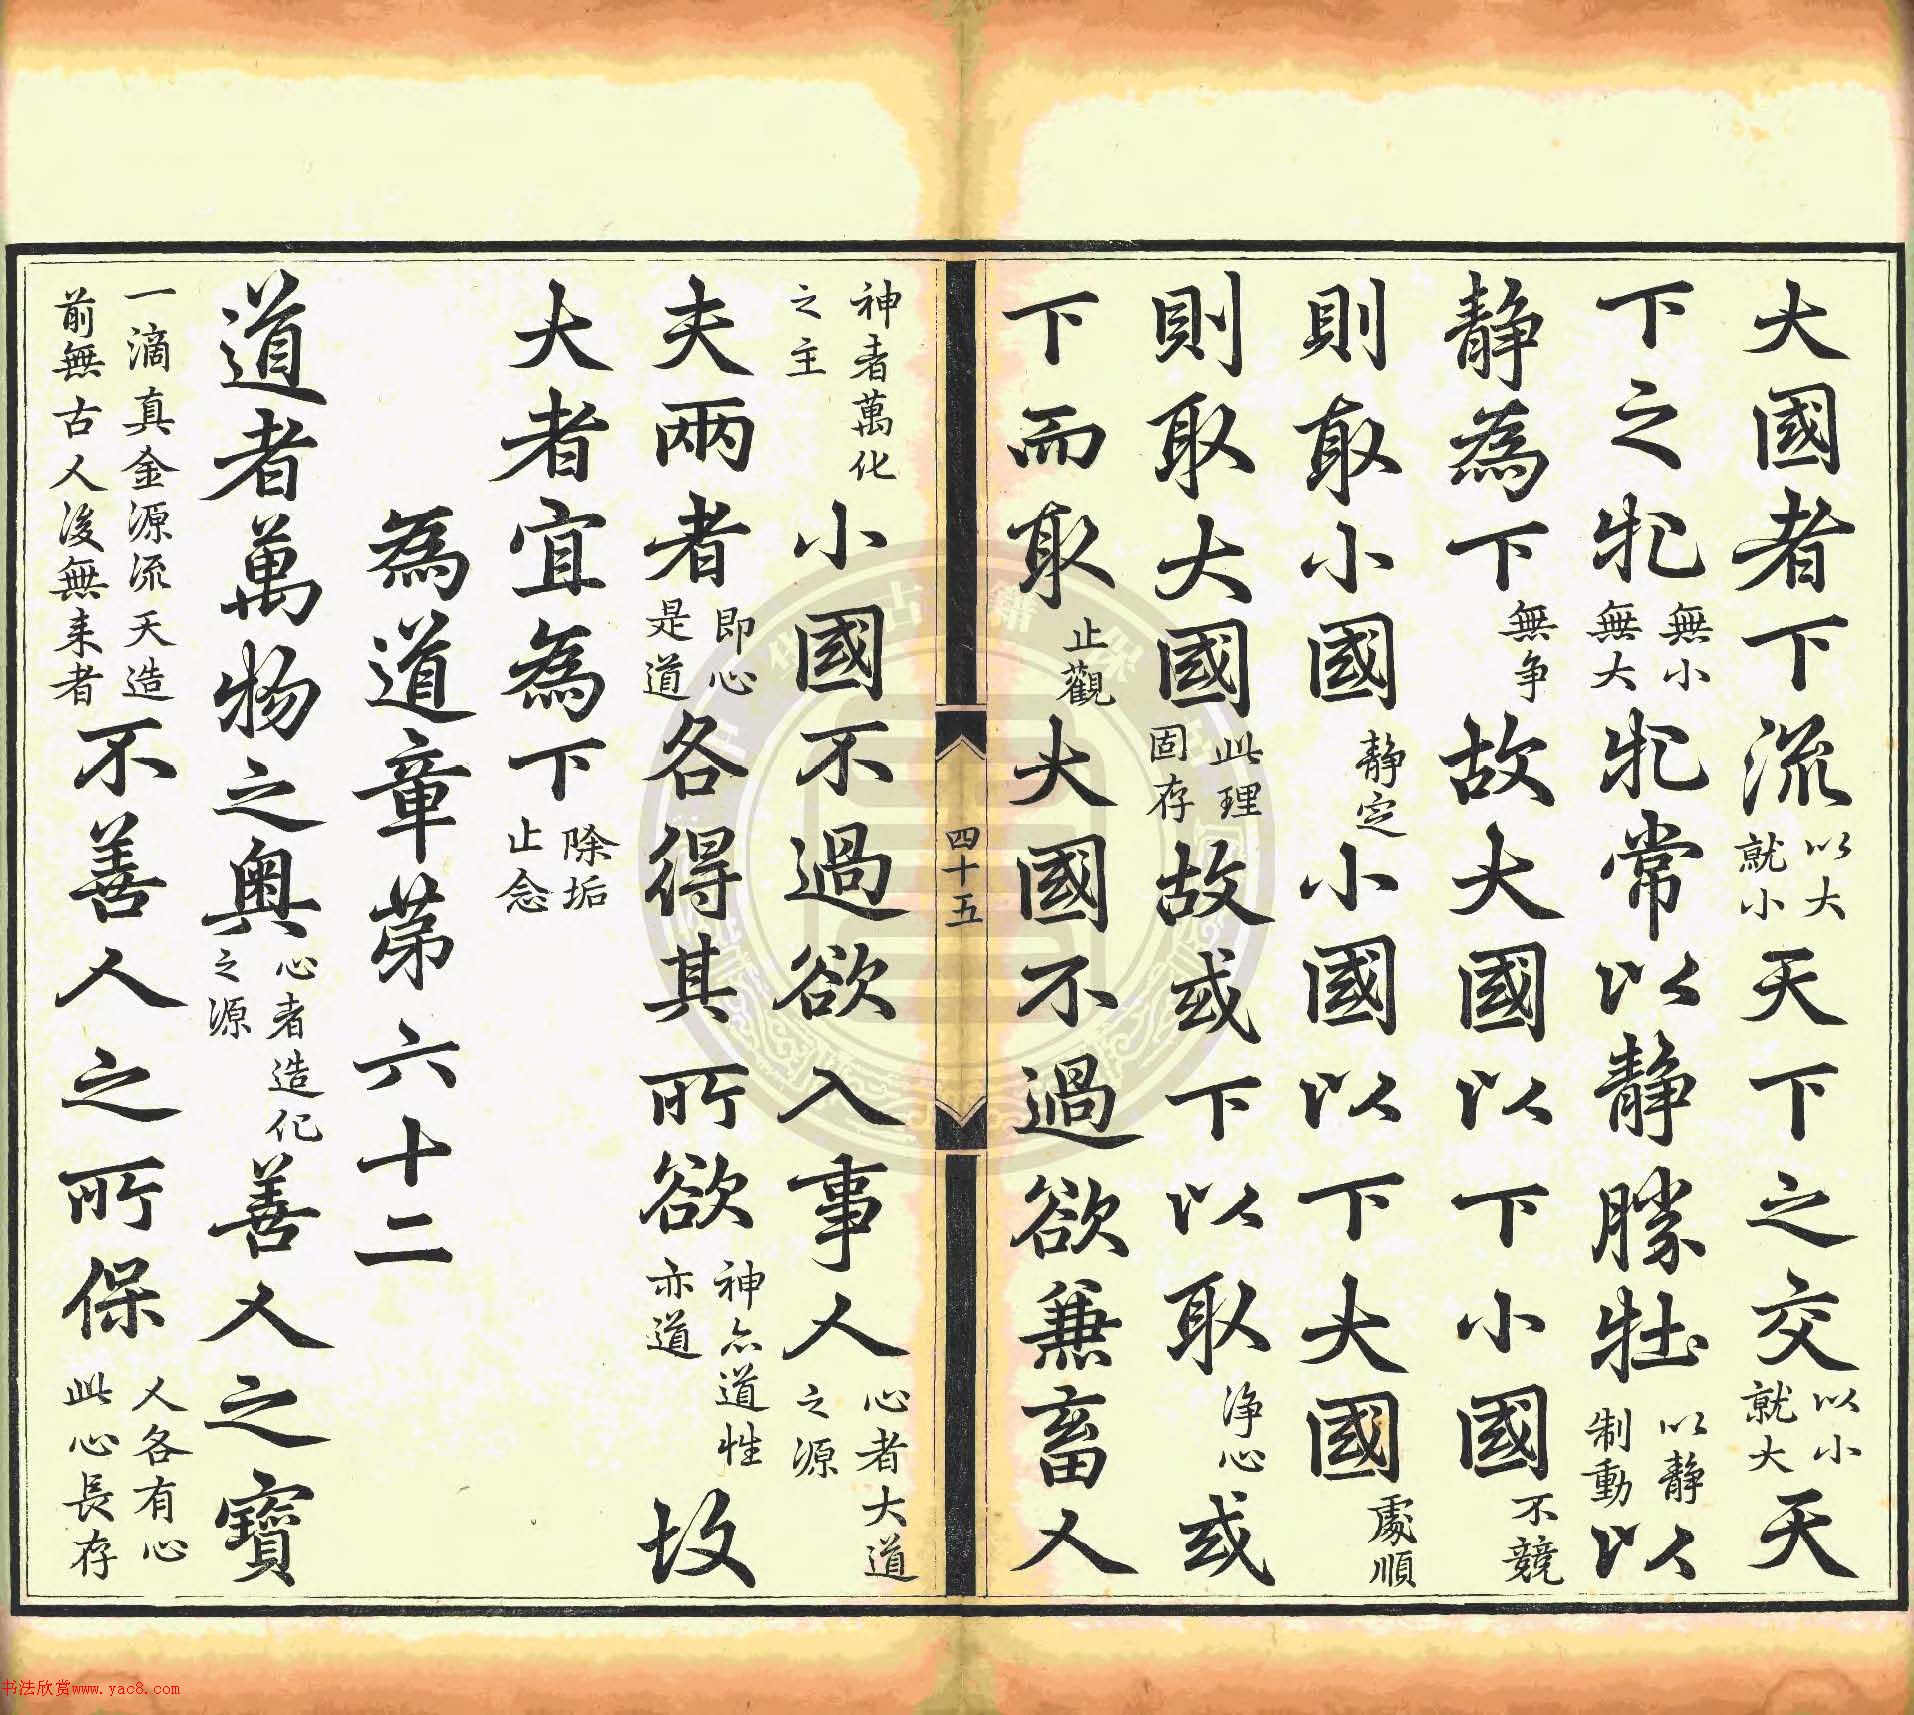 大國者下流以大就小天下之交以小就大天
下之牝無小無大牝常以静勝牡以静制動以
静為下無争故大國以下小國不競
則取小國静定小國以下大國處順
則取大國此理固存故或下以取浄心或
下而取止觀大國不過欲兼畜人
四十五
神者萬化之主小國不過欲入事人心者大道之源
夫兩者即心是道各得其所欲神亦道性亦道故
大者宜為下除垢止念
為道章第六十二
道者萬物之奥心者造化之源善人之寶
一滴真金源流天造前無古人後無来者不善人之所保人各有心此心長存
书法欣赏www.yac8.com